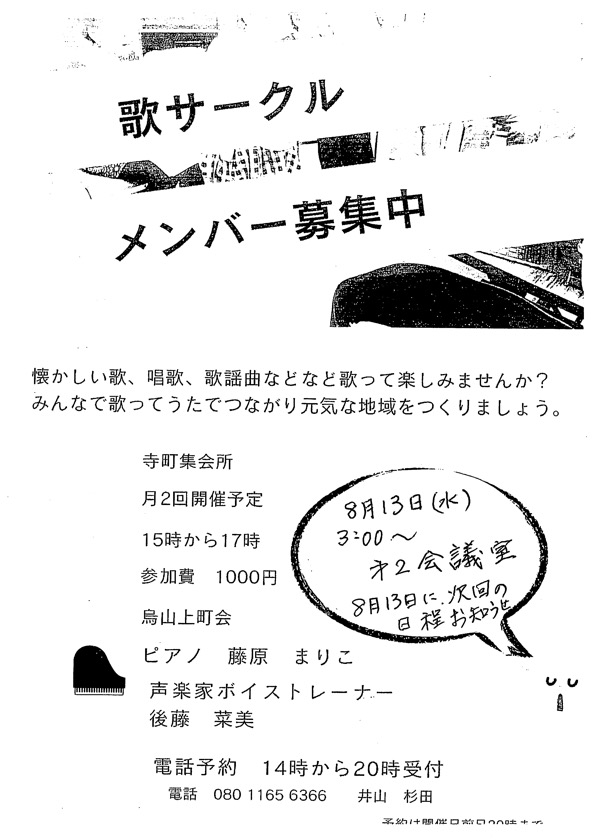 歌サークル
メンバー募集中
懐かしい歌、唱歌、歌謡曲などなど歌って楽しみませんか？
みんなで歌ってうたでつながり元気な地域をつくりましょう。
寺町集会所
月2回開催予定
15時から17時
参加費　1000円
烏山上町会
8月13日(水)
3:00〜
才2会議室
8月13日に、次回の
日程お知らせ
ピアノ　藤原　まりこ
声楽家ボイストレーナー
後藤　菜美
電話予約　14時から20時受付
電話　080 1165 6366　　井山　杉田
予約は開催日前日20時まで